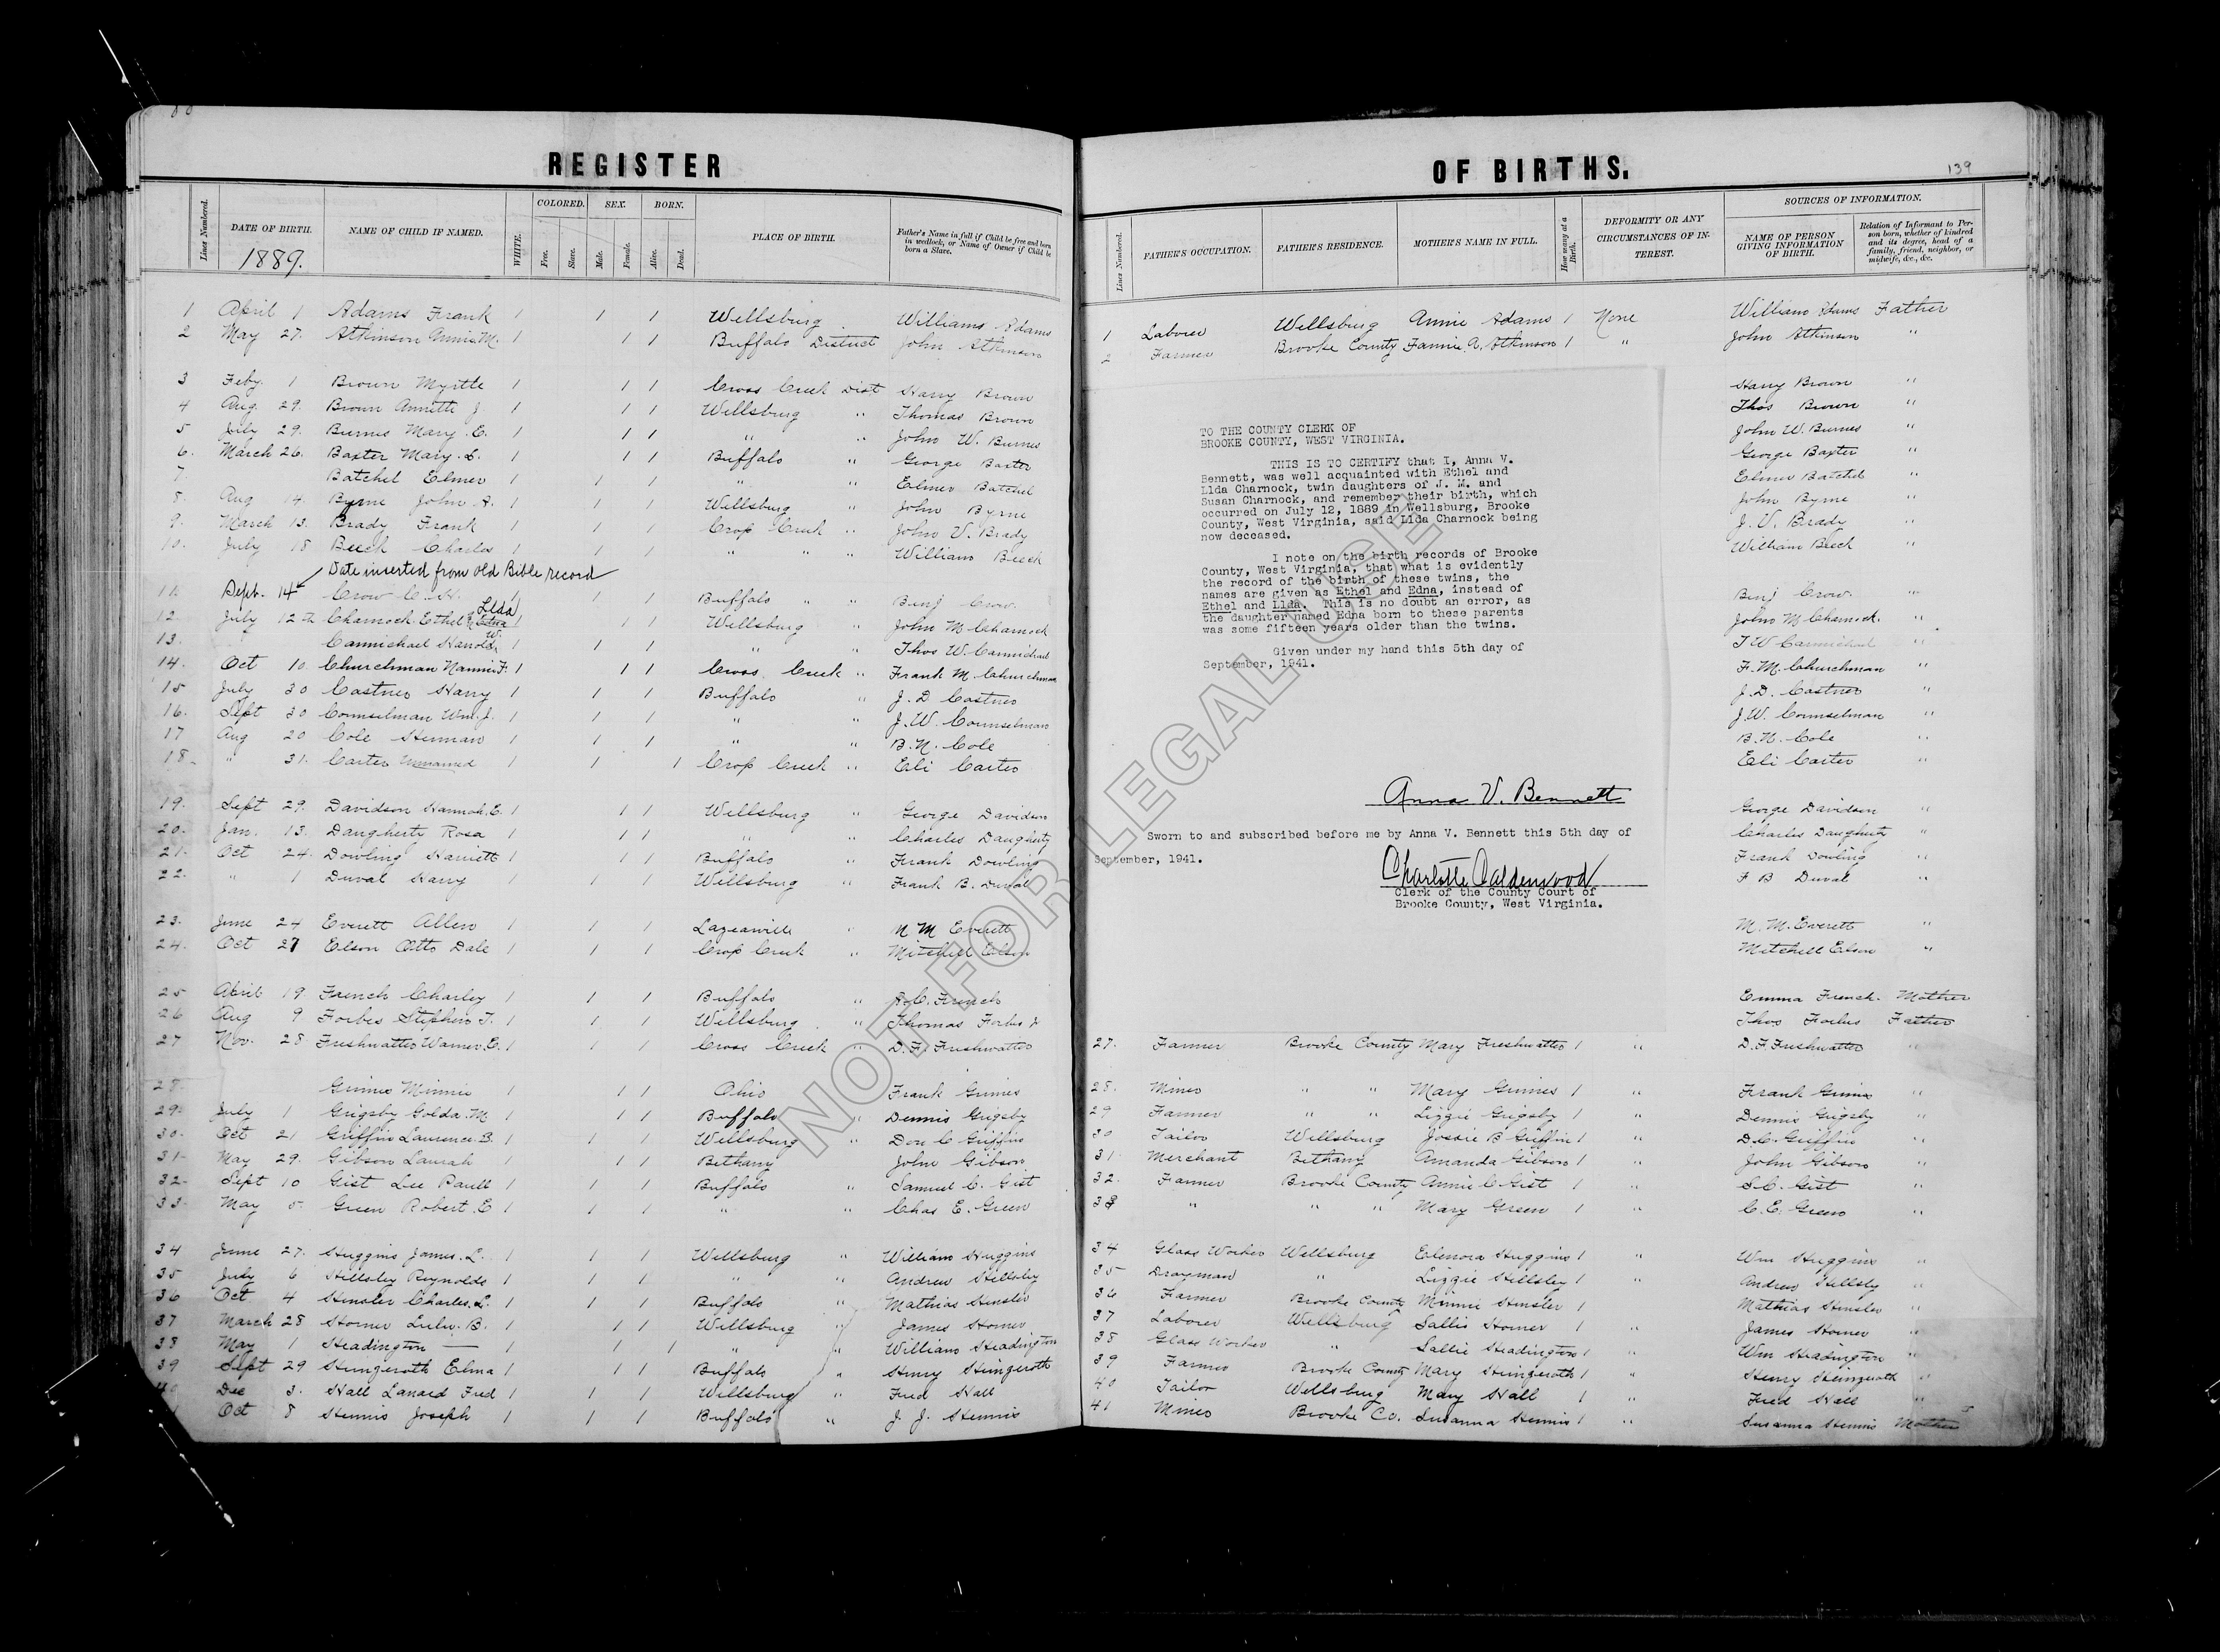 REGISTER
OF BIRTHS.
139
Lines Numbered. DATE OF BIRTH. NAME OF CHILD IF NAMED. WHITE. COLORED. Free. Slave. SEX. Male. Female. BORN. Alive. Dead. PLACE OF BIRTH. Father's Name in full if Child be free and born in wedlock, or Name of Owner if Child be born a Slave.
1889.
Lines Numbered. FATHER'S OCCUPATION. FATHER'S RESIDENCE. MOTHER'S NAME IN FULL. How many at a Birth. DEFORMITY OR ANY CIRCUMSTANCES OF INTEREST. SOURCES OF INFORMATION. NAME OF PERSON GIVING INFORMATION OF BIRTH. Relation of Informant to Person born, whether of kindred and its degree, head of a family, friend, neighbor, or midwife, &c., &c.
1 April 1 Adams Frank 1 1 1 Wellsburg Williams Adams
2 May 27. Atkinson Annie M. 1 1 1 Buffalo District John Atkinson
3 Feby. 1 Brown Myrtle 1 1 1 Cross Creek Dist Harry Brown
4 Aug. 29. Brown Annette J. 1 1 1 Wellsburg " Thomas Brown
5 July 29. Burnes Mary C. 1 1 1 " " John W. Burnes
6. March 26. Baxter Mary L. 1 1 1 Buffalo " George Baxter
7. Batchel Elmer 1 1 1 " " Elmer Batchel
8. Aug 14. Byrne John A. 1 1 1 Wellsburg " John Byrne
9. March 13. Brady Frank 1 1 1 Cross Creek " John V. Brady
10. July 18 Beech Charles 1 1 1 " " " William Beech
Date inserted from old Bible record
11. Sept. 14 Crow C. H. 1 1 1 Buffalo " " Benj Crow
Llda
12 July 12th Charnock Ethel & Edna 1 1 1 Wellsburg John M Charnock
13. Carmichael Harold W. 1 1 1 " " Thos W. Carmichael
14. Oct 10. Churchman Nannie F. 1 1 1 Cross Creek " Frank M Churchman
15 July 30 Castner Harry 1 1 1 Buffalo " J. D Castner
16. Sept 30 Counselman Wm. J. 1 1 1 " " J. W. Counselman
17 Aug 20 Cole Herman 1 1 1 " " B. N. Cole
18 " 31. Carter Unnamed 1 1 1 Cross Creek " Eli Carter
19. Sept 29. Davidson Hannah E. 1 1 1 Wellsburg " George Davidson
20. Jan. 13. Daugherty Rosa 1 1 1 " " Charles Daugherty
21. Oct 24. Dowling Harriett 1 1 1 Buffalo " Frank Dowling
22. " 1 Duval Harry 1 1 1 Wellsburg " Frank B. Duval
23. June 24 Everett Allen 1 1 1 Lazearville " N M Everett
24. Oct 27 Elson Otto Dale 1 1 1 Cross Creek " Mitchell Elson
25 April 19 French Charley 1 1 1 Buffalo " French
26 Aug 9 Forbes Stephen T. 1 1 1 Wellsburg " Thomas Forbes
27 Nov. 28 Freshwatter Warner E. 1 1 1 Cross Creek " D. F. Freshwatter
28. Grimes Minnie 1 1 1 Ohio Frank Grimes
29. July 1 Grigsby Golda M. 1 1 1 Buffalo " Dennis Grigsby
30. Oct 21 Griffin Laurence B. 1 1 1 Wellsburg " Don C Griffin
31 May 29. Gibson Laurah 1 1 1 Bethany John Gibson
32 Sept 10 Gist Lee Paull 1 1 1 Buffalo " Samuel C. Gist
33 May 5. Green Robert E 1 1 1 " " Chas E. Green
34 June 27. Huggins James L. 1 1 1 Wellsburg " William Huggins
35 July 6 Hillsley Reynolds 1 1 1 " " Andrew Hillsley
36 Oct 4 Hensler Charles L. 1 1 1 Buffalo " Mathias Hensler
37 March 28 Homer Lulu B. 1 1 1 Wellsburg " James Homer
38 May 1 Headington — 1 1 1 " " William Headington
39 Sept 29 Hungeroth Elma 1 1 1 Buffalo " Henry Heingeroth
40 Dec 3. Hall Lanard Fred 1 1 1 Wellsburg " Fred Hall
Oct 8 Hennis Joseph 1 1 1 Buffalo " J. J. Hennis
1 Laborer Wellsburg Annie Adams 1 None William Adams Father
2 Farmer Brooke County Fannie A. Atkinson 1 " John Atkinson "
Harry Brown "
Thos Brown "
John W. Burnes "
George Baxter "
Elmer Batchel "
John Byrne "
J. V. Brady "
William Beech "
Benj Crow "
John M Charnock. "
T W Carmichael "
F. M. Churchman "
J. D. Castner "
J. W. Counselman "
B. N. Cole "
Eli Carter "
George Davidson "
Charles Daugherty "
Frank Dowling "
F B Duval "
M. M. Everett "
Mitchell Elson "
Emma French. Mother
Thos Forbes Father
TO THE COUNTY CLERK OF
BROOKE COUNTY, WEST VIRGINIA.
THIS IS TO CERTIFY that I, Anna V.
Bennett, was well acquainted with Ethel and
Llda Charnock, twin daughters of J. M. and
Susan Charnock, and remember their birth, which
occurred on July 12, 1889 in Wellsburg, Brooke
County, West Virginia, said Llda Charnock being
now deceased.
I note on the birth records of Brooke
County, West Virginia, that what is evidently
the record of the birth of these twins, the
names are given as Ethel and Edna, instead of
Ethel and Llda. This is no doubt an error, as
the daughter named Edna born to these parents
was some fifteen years older than the twins.
Given under my hand this 5th day of
September, 1941.
Anna V. Bennett
Sworn to and subscribed before me by Anna V. Bennett this 5th day of
September, 1941.
Charlotte Caldenwood
Clerk of the County Court of
Brooke County, West Virginia.
27. Farmer Brooke County Mary Freshwatter 1 " D. F. Freshwatter "
28. Miner " " Mary Grimes 1 " Frank Grimes "
29 Farmer " " Lizzie Grigsby 1 " Dennis Grigsby "
30 Tailor Wellsburg Jossie B Griffin 1 " D. C. Griffin "
31 Merchant Bethany Amanda Gibson 1 " John Gibson "
32. Farmer Brooke County Annie C Gist 1 " S. C. Gist "
33 " " " Mary Green 1 " C. E. Green "
34 Glass Worker Wellsburg Elenora Huggins 1 " Wm Huggins "
35 Drayman " Lizzie Hillsley 1 " Andrew Hillsly "
36 Farmer Brooke County Minnie Hensler 1 Mathias Hensler "
37 Laborer Wellsburg Sallie Homer 1 " James Homer "
38 Glass Worker " Sallie Headington 1 " Wm Headington "
39 Farmer Brooke County Mary Heingeroth 1 " Henry Heingeroth "
40 Tailor Wellsburg Mary Hall 1 " Fred Hall "
41 Miner Brooke Co. Susanna Hennis 1 " Susanna Hennis Mother
NOT FOR LEGAL USE